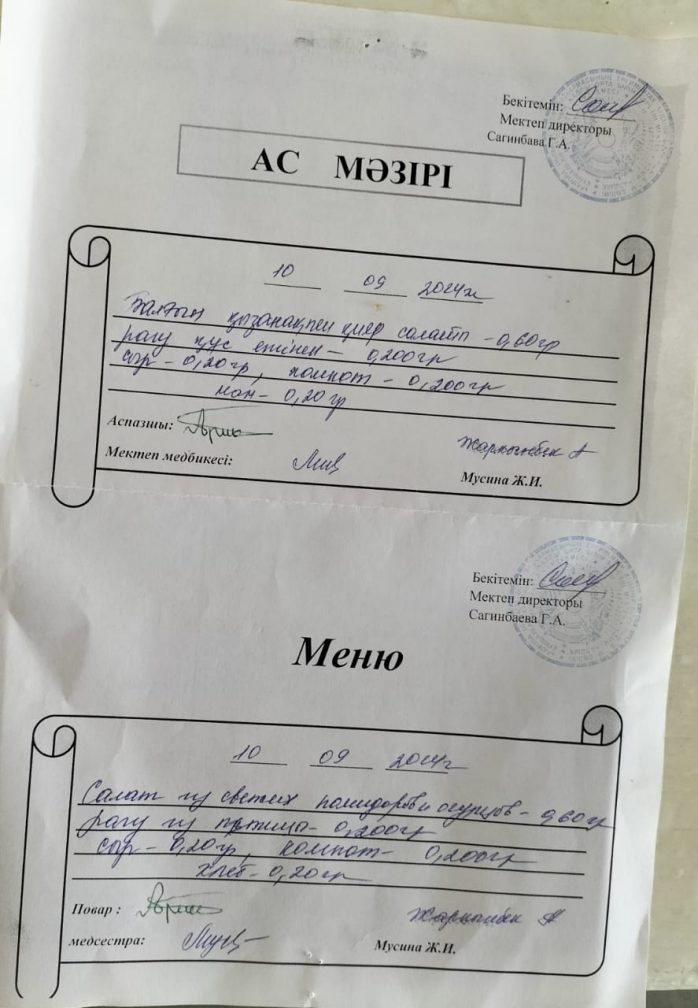 Бекітемін:
Мектеп директоры
Сагинбава Г.А.
АС МӘЗІРІ
10 09 2024ж
Балғын қызанақпен қияр салаты - 0,60гр
рагу құс етінен - 0,200гр
сыр - 0,20гр, компот - 0,200гр
нан - 0,20гр
Аспазшы:
Жармынбек А
Мектеп медбикесі:
Мусина Ж.И.
Бекітемін:
Мектеп директоры
Сагинбаева Г.А.
Меню
10 09 2024г
Салат из свежих помидоров и огурцов - 0,60гр
рагу из птицы - 0,200гр
сыр - 0,20гр, компот - 0,200гр
хлеб - 0,20гр
Повар :
Жармынбек А
медсестра:
Мусина Ж.И.